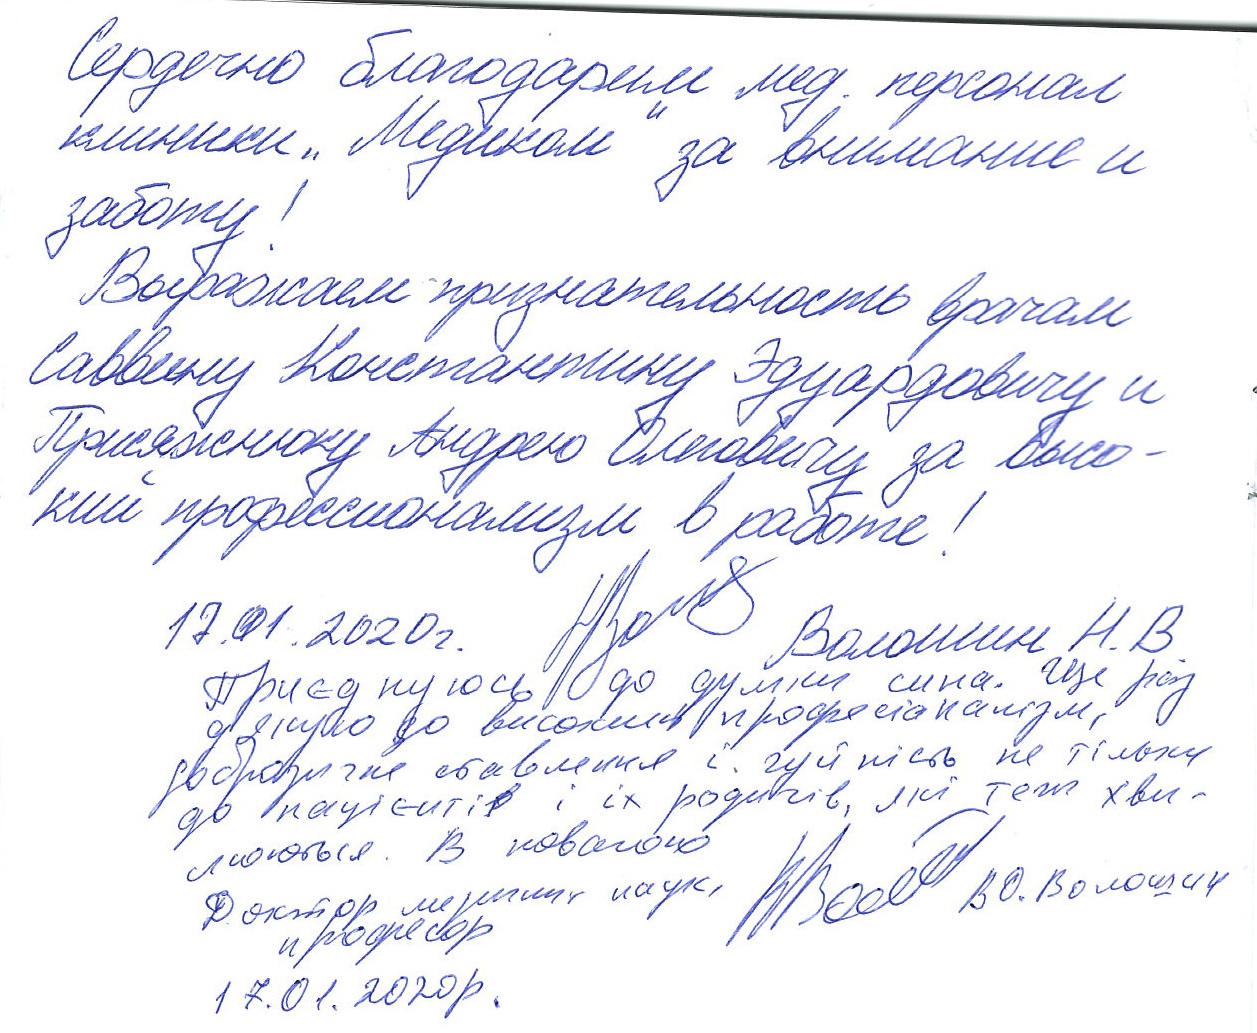 Сердечно благодарим мед. персонал
клиники „Медиком" за внимание и
заботу!
Выражаем признательность врачам
Саввину Константину Эдуардовичу и
Присяжнюку Андрею Олеговичу за высо-
кий профессионализм в работе!
17.01.2020г. Волошин Н.В
Приєднуюсь до думки сина. Ще раз
дякую за високий професіоналізм,
доброзичне ставлення і чуйність не тільки
до пацієнтів і їх родичів, які теж хви-
люються. В повагою
Доктор медичних наук,
професор В.О. Волошин
17.01.2020р.